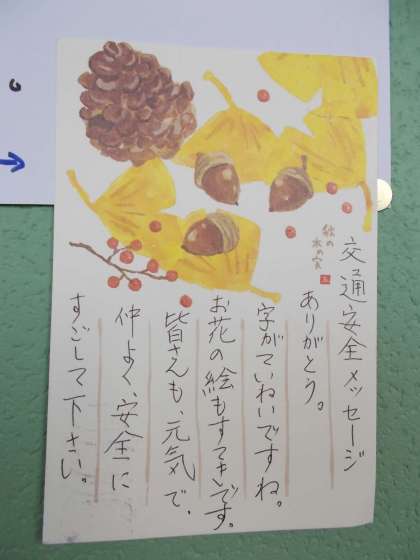 交通安全メッセージ
ありがとう。
字がていねいですね。
お花の絵もすてきです。
皆さんも、元気で、
仲よく、安全に
すごして下さい。
秋の
木の実